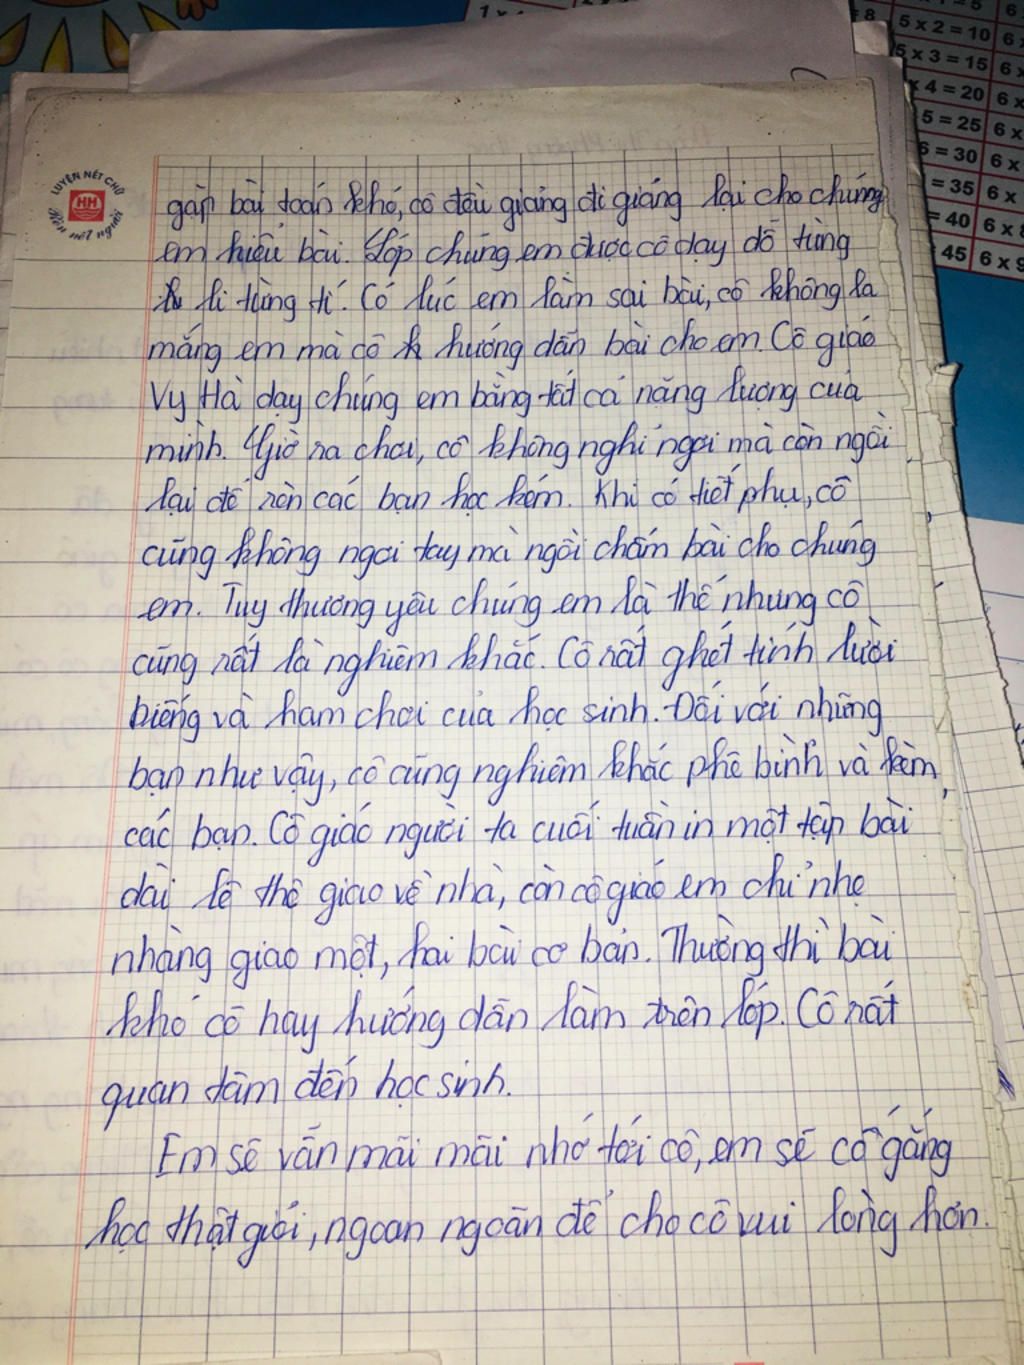 1 x
5 x 2 = 10
5 x 3 = 15
x 4 = 20
5 = 25
6 = 30
= 35
= 40
45
6 x 9
LUYỆN NÉT CHỮ
HH
Rèn nết người
gặp bài toán khó, cô đều giảng đi giảng lại cho chúng
em hiểu bài. Lớp chúng em được cô dạy dỗ từng
li từng tí. Có lúc em làm sai bài, cô không la
mắng em mà cô hướng dẫn bài cho em. Cô giáo
Vy Hà dạy chúng em bằng tất cả năng lượng của
mình. Giờ ra chơi, cô không nghỉ ngơi mà còn ngồi
lại để rèn các bạn học kém. Khi có tiết phụ, cô
cũng không ngơi tay mà ngồi chấm bài cho chúng
em. Tuy thương yêu chúng em là thế nhưng cô
cũng rất là nghiêm khắc. Cô rất ghét tính lười
biếng và ham chơi của học sinh. Đối với những
bạn như vậy, cô cũng nghiêm khắc phê bình và kèm
các bạn. Cô giáo người ta cuối tuần in một tập bài
dài lê thê giao về nhà, còn cô giáo em chỉ nhẹ
nhàng giao một, hai bài cơ bản. Thường thì bài
khó cô hay hướng dẫn làm trên lớp. Cô rất
quan tâm đến học sinh.
Em sẽ vẫn mãi mãi nhớ tới cô, em sẽ cố gắng
học thật giỏi, ngoan ngoãn để cho cô vui lòng hơn.